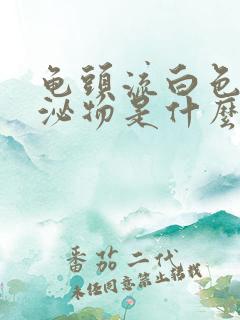 龟頭流白色
泌物是什麼
番茄二代
未任同意禁止轉载